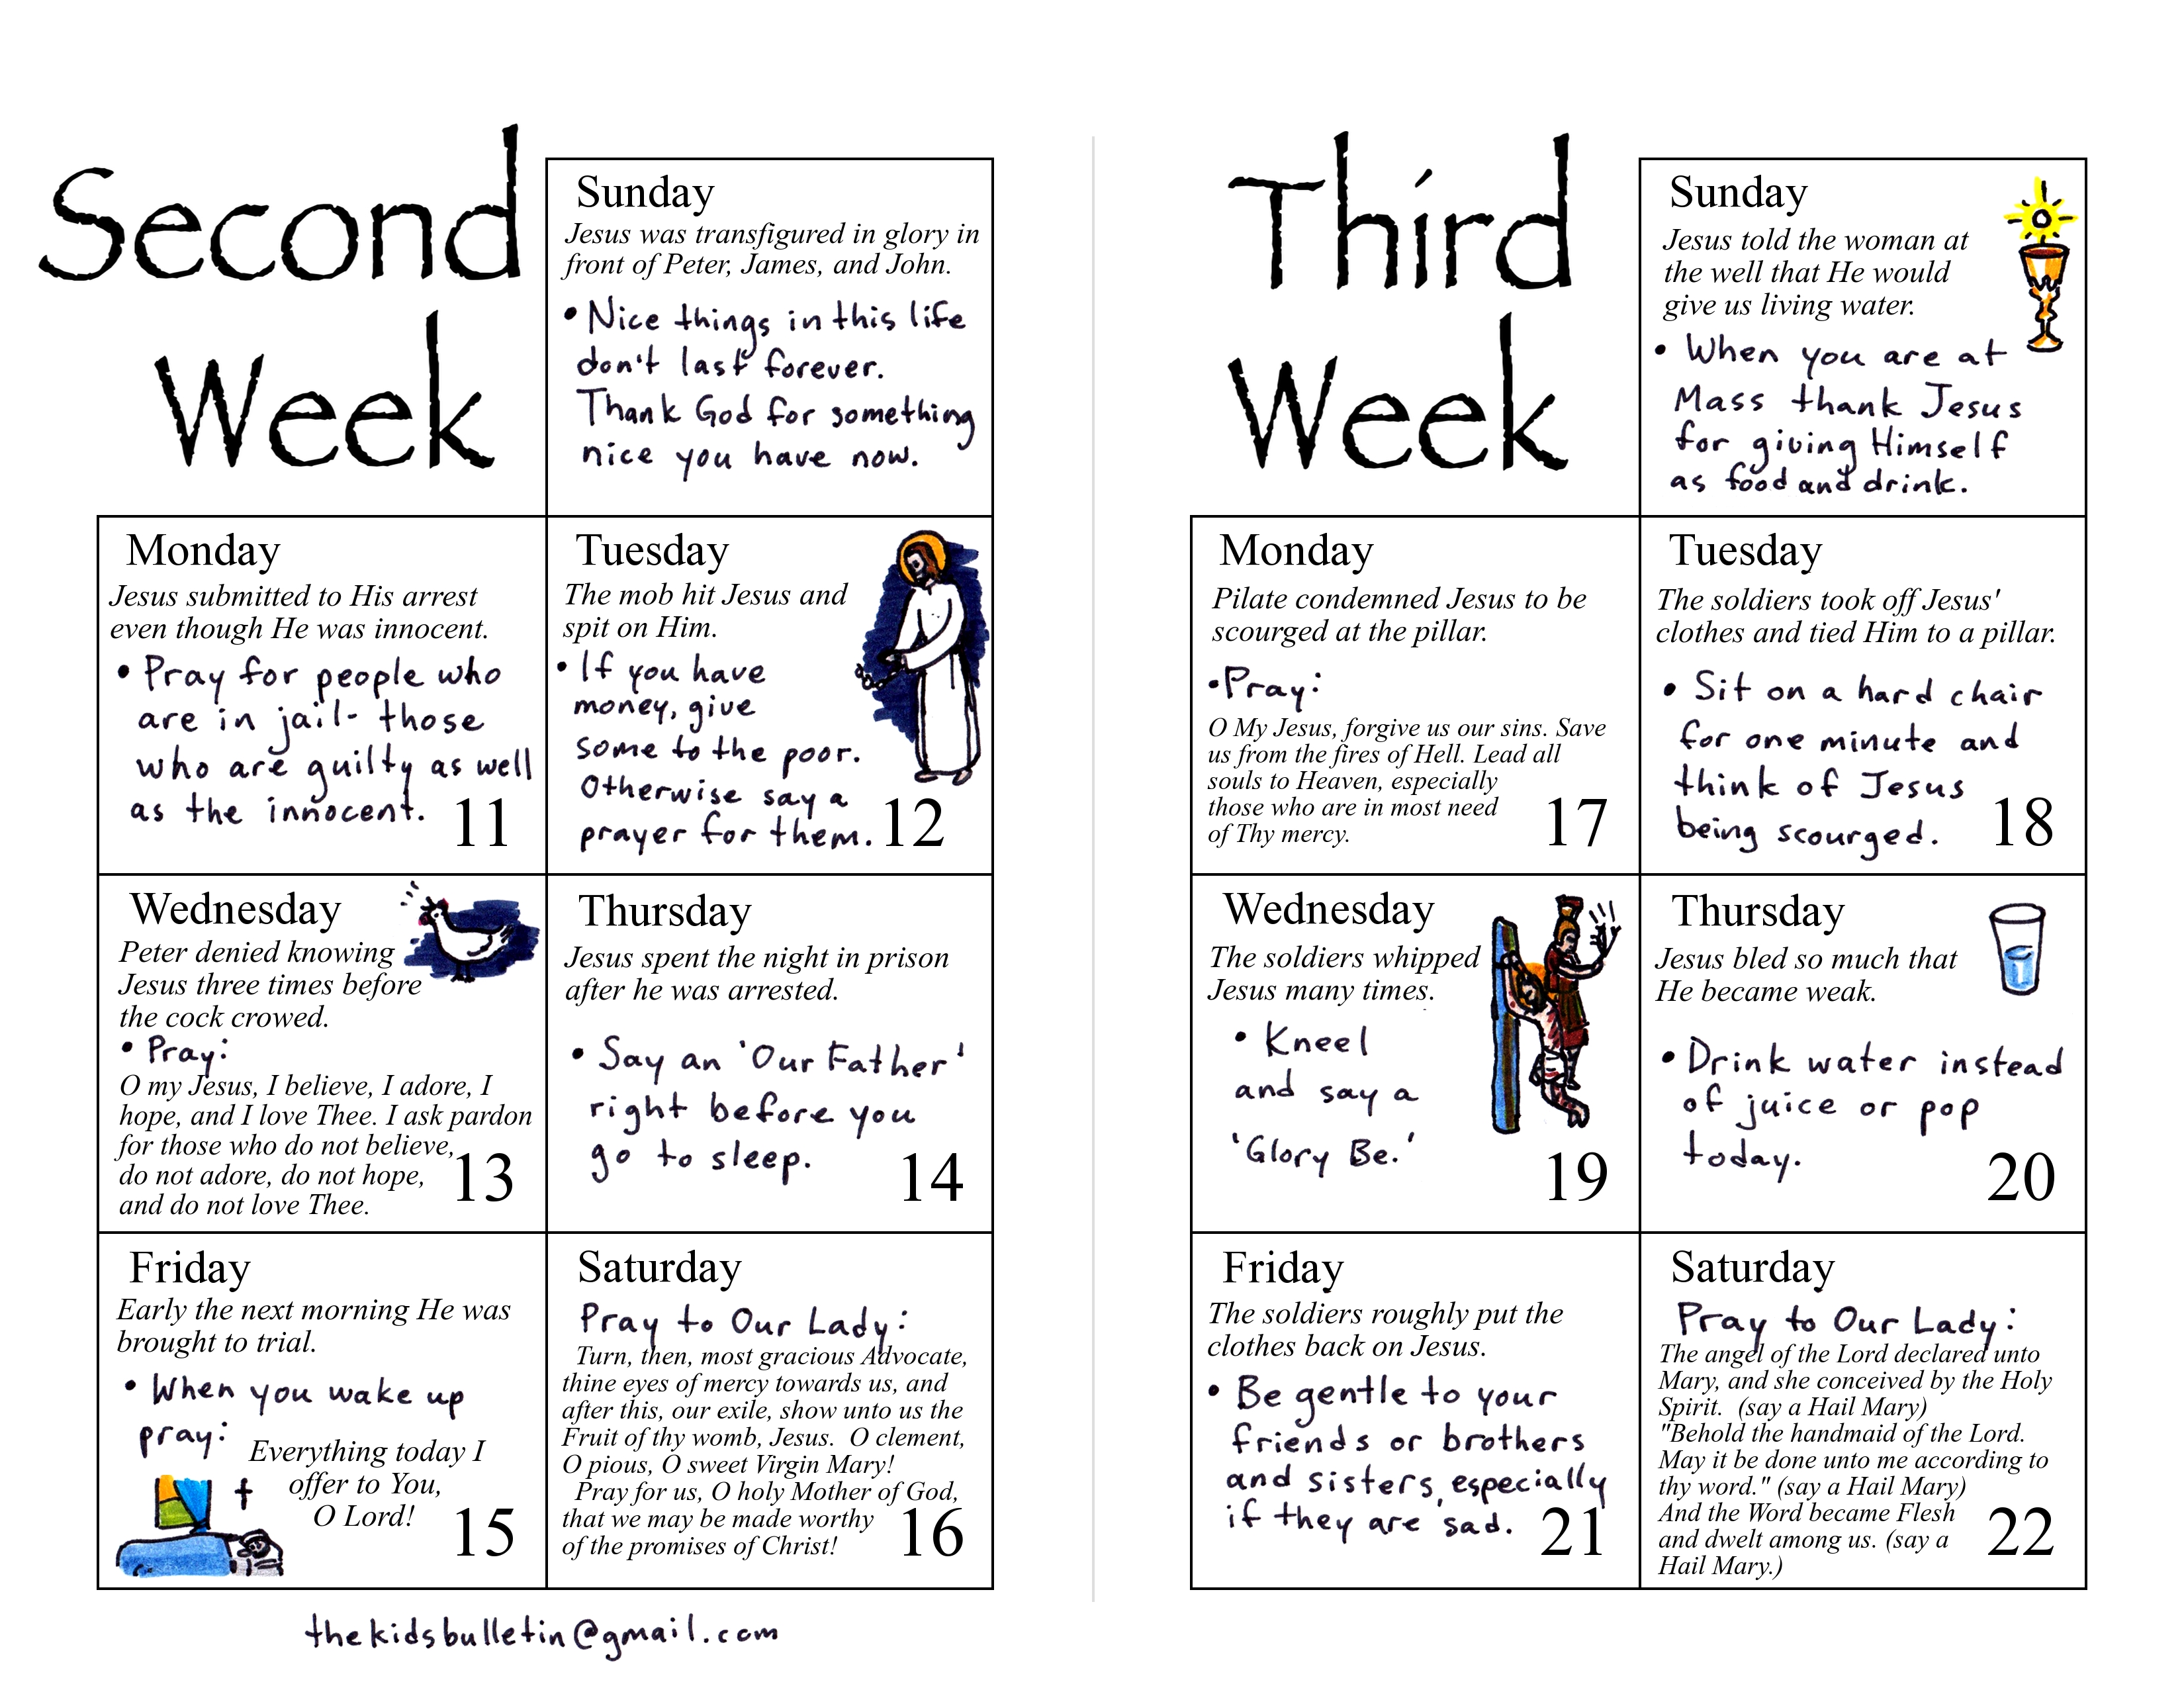 Second
Week
Sunday
Jesus was transfigured in glory in
front of Peter, James, and John.
• Nice things in this life
don't last forever.
Thank God for something
nice you have now.
Monday
Jesus submitted to His arrest
even though He was innocent.
• Pray for people who
are in jail- those
who are guilty as well
as the innocent.
11
Tuesday
The mob hit Jesus and
spit on Him.
• If you have
money, give
some to the poor.
Otherwise say a
prayer for them.
12
Wednesday
Peter denied knowing
Jesus three times before
the cock crowed.
• Pray:
O my Jesus, I believe, I adore, I
hope, and I love Thee. I ask pardon
for those who do not believe,
do not adore, do not hope,
and do not love Thee.
13
Thursday
Jesus spent the night in prison
after he was arrested.
• Say an 'Our Father'
right before you
go to sleep.
14
Friday
Early the next morning He was
brought to trial.
• When you wake up
pray:
Everything today I
offer to You,
O Lord!
15
Saturday
Pray to Our Lady:
Turn, then, most gracious Advocate,
thine eyes of mercy towards us, and
after this, our exile, show unto us the
Fruit of thy womb, Jesus. O clement,
O pious, O sweet Virgin Mary!
Pray for us, O holy Mother of God,
that we may be made worthy
of the promises of Christ!
16
thekidsbulletin@gmail.com
Third
Week
Sunday
Jesus told the woman at
the well that He would
give us living water.
• When you are at
Mass thank Jesus
for giving Himself
as food and drink.
Monday
Pilate condemned Jesus to be
scourged at the pillar.
• Pray:
O My Jesus, forgive us our sins. Save
us from the fires of Hell. Lead all
souls to Heaven, especially
those who are in most need
of Thy mercy.
17
Tuesday
The soldiers took off Jesus'
clothes and tied Him to a pillar.
• Sit on a hard chair
for one minute and
think of Jesus
being scourged.
18
Wednesday
The soldiers whipped
Jesus many times.
• Kneel
and say a
'Glory Be.'
19
Thursday
Jesus bled so much that
He became weak.
• Drink water instead
of juice or pop
today.
20
Friday
The soldiers roughly put the
clothes back on Jesus.
• Be gentle to your
friends or brothers
and sisters, especially
if they are sad.
21
Saturday
Pray to Our Lady:
The angel of the Lord declared unto
Mary, and she conceived by the Holy
Spirit. (say a Hail Mary)
"Behold the handmaid of the Lord.
May it be done unto me according to
thy word." (say a Hail Mary)
And the Word became Flesh
and dwelt among us. (say a
Hail Mary.)
22